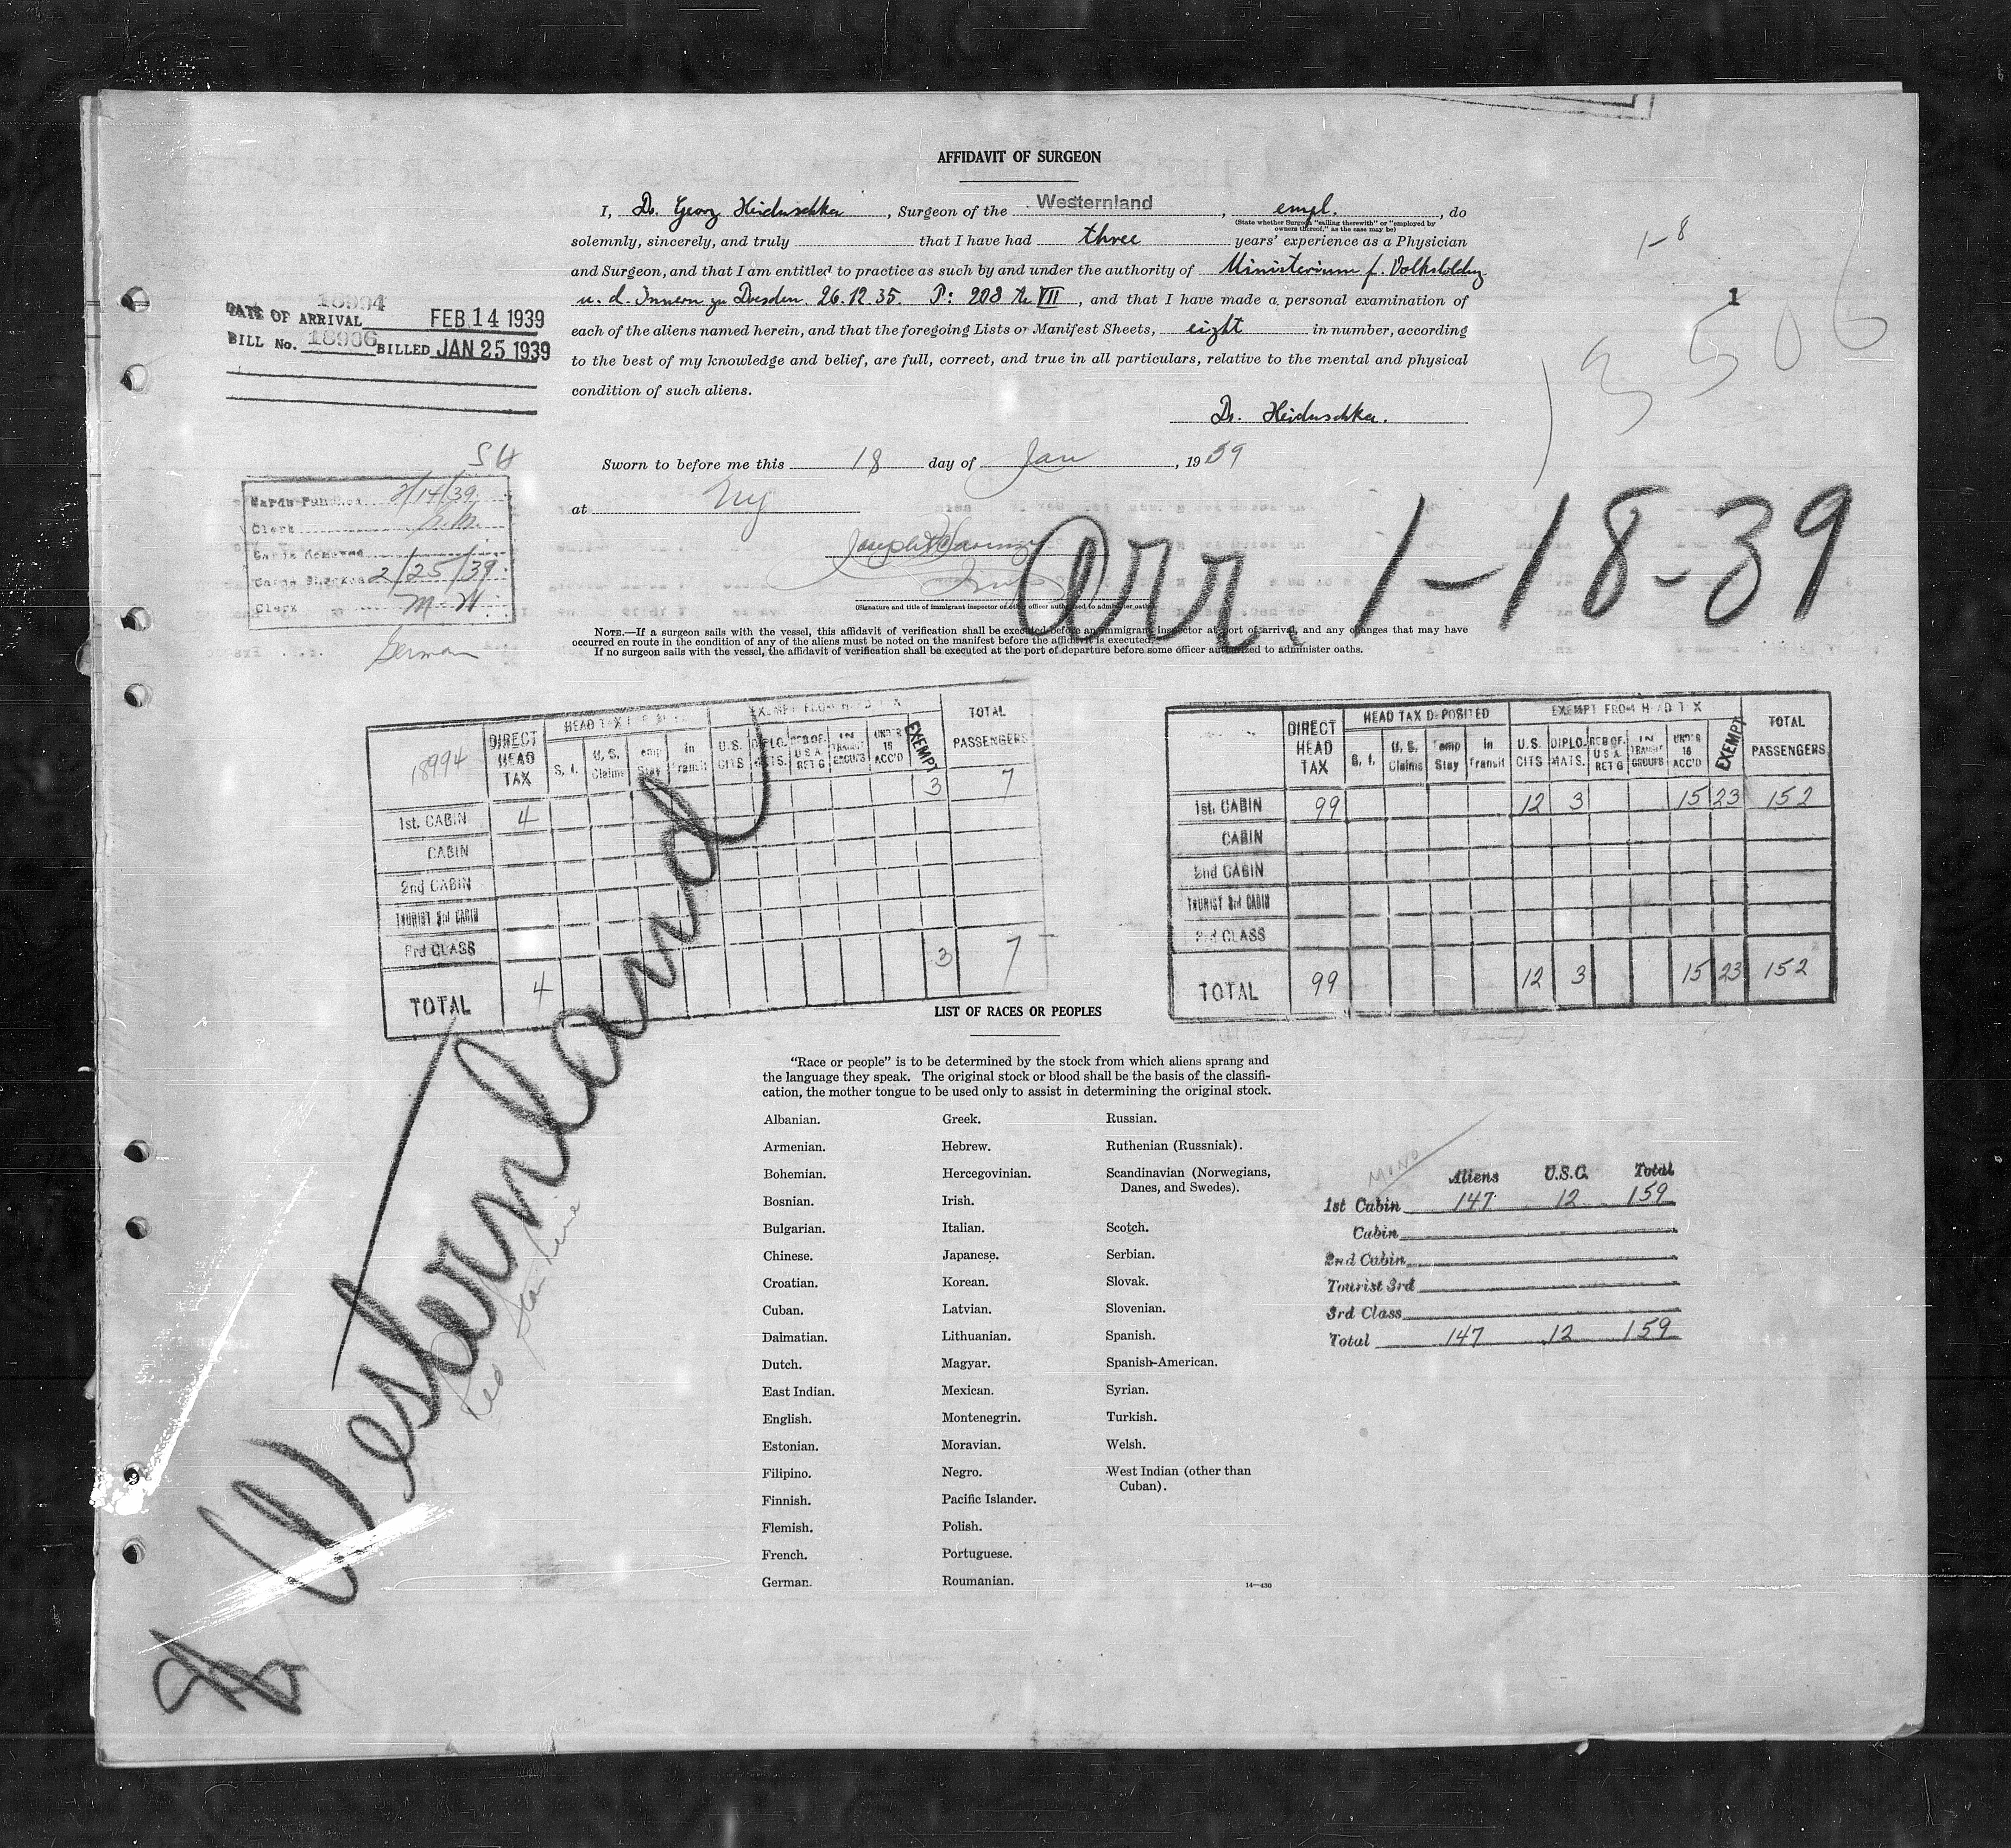 AFFIDAVIT OF SURGEON
I, Dr. Georg Heiduschka, Surgeon of the Westernland, empl., do
(State whether Surgeon "sailing therewith" or "employed by
owners thereof," as the case may be)
solemnly, sincerely, and truly that I have had three years' experience as a Physician
and Surgeon, and that I am entitled to practice as such by and under the authority of Ministerium f. Volksbildng
u. d. Innern zu Dresden. 26.12.35. P: 208 VII, and that I have made a personal examination of
each of the aliens named herein, and that the foregoing Lists or Manifest Sheets, eight in number, according
to the best of my knowledge and belief, are full, correct, and true in all particulars, relative to the mental and physical
condition of such aliens.
Dr. Heiduschka.
Sworn to before me this 18 day of Jan, 1939
at NY
(Signature and title of immigrant inspector or other officer authorized to administer oaths)
NOTE.—If a surgeon sails with the vessel, this affidavit of verification shall be executed before an immigrant inspector at port of arrival, and any changes that may have
occurred en route in the condition of any of the aliens must be noted on the manifest before the affidavit is executed.
If no surgeon sails with the vessel, the affidavit of verification shall be executed at the port of departure before some officer authorized to administer oaths.
1-8
1
13506
18994
DATE OF ARRIVAL FEB 14 1939
BILL No. 18906 BILLED JAN 25 1939
Cards Punched 2/14/39
Clerk
Cards Removed
Cards Checked 2/25/39
Clerk M. H.
German
Arr. 1-18-39
18994
DIRECT HEAD TAX
HEAD TAX DEPOSITED
EXEMPT FROM HEAD TAX
TOTAL PASSENGERS
S. I. U. S. Claims Temp Stay In Transit U.S. CITS DIPLOMATS. RES OF U S A RET G IN TRANSIT GROUPS UNDER 16 ACC'D EXEMPT
3 7
1st. CABIN 4
CABIN
2nd CABIN
TOURIST 3rd CABIN
3rd CLASS
TOTAL 4 3 7
DIRECT HEAD TAX
HEAD TAX DEPOSITED
EXEMPT FROM HEAD TAX
TOTAL PASSENGERS
S. I. U. S. Claims Temp Stay In Transit U.S. CITS DIPLOMATS. RES OF U S A RET G IN TRANSIT GROUPS UNDER 16 ACC'D EXEMPT
1st. CABIN 99 12 3 15 23 152
CABIN
2nd CABIN
TOURIST 3rd CABIN
3rd CLASS
TOTAL 99 12 3 15 23 152
Westernland
LIST OF RACES OR PEOPLES
"Race or people" is to be determined by the stock from which aliens sprang and
the language they speak. The original stock or blood shall be the basis of the classifi-
cation, the mother tongue to be used only to assist in determining the original stock.
Albanian.
Armenian.
Bohemian.
Bosnian.
Bulgarian.
Chinese.
Croatian.
Cuban.
Dalmatian.
Dutch.
East Indian.
English.
Estonian.
Filipino.
Finnish.
Flemish.
French.
German.
Greek.
Hebrew.
Hercegovinian.
Irish.
Italian.
Japanese.
Korean.
Latvian.
Lithuanian.
Magyar.
Mexican.
Montenegrin.
Moravian.
Negro.
Pacific Islander.
Polish.
Portuguese.
Roumanian.
Russian.
Ruthenian (Russniak).
Scandinavian (Norwegians,
Danes, and Swedes).
Scotch.
Serbian.
Slovak.
Slovenian.
Spanish.
Spanish-American.
Syrian.
Turkish.
Welsh.
West Indian (other than
Cuban).
14—430
MONO
Aliens U.S.C. Total
1st Cabin 147 12 159
Cabin
2nd Cabin
Tourist 3rd
3rd Class
Total 147 12 159